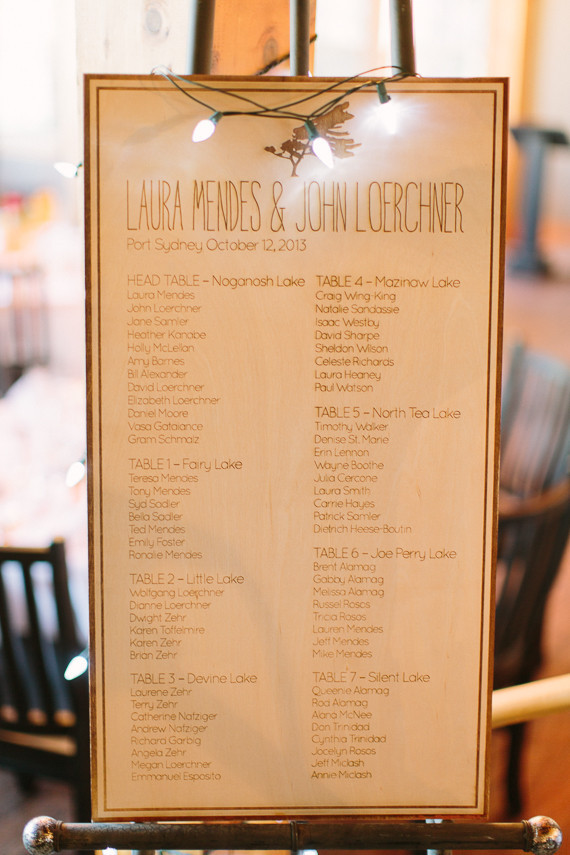 LAURA MENDES & JOHN LOERCHNER
Port Sydney October 12, 2013
HEAD TABLE – Noganosh Lake
Laura Mendes
John Loerchner
Jane Samier
Heather Kanabe
Holly McLellan
Amy Barnes
Bill Alexander
David Loerchner
Elizabeth Loerchner
Daniel Moore
Vasa Gataiance
Gram Schmalz
TABLE 1 – Fairy Lake
Teresa Mendes
Tony Mendes
Syd Sadler
Bella Sadler
Ted Mendes
Emily Foster
Ronalie Mendes
TABLE 2 – Little Lake
Wolfgang Loerchner
Dianne Loerchner
Dwight Zehr
Karen Toffelmire
Karen Zehr
Brian Zehr
TABLE 3 – Devine Lake
Laurene Zehr
Terry Zehr
Catherine Nafziger
Andrew Nafziger
Richard Garbig
Angela Zehr
Megan Loerchner
Emmanuel Esposito
TABLE 4 – Mazinaw Lake
Craig Wing-King
Natalie Sandassie
Isaac Westby
David Sharpe
Sheldon Wilson
Celeste Richards
Laura Heaney
Paul Watson
TABLE 5 – North Tea Lake
Timothy Walker
Denise St. Marie
Erin Lennon
Wayne Boothe
Julia Cercone
Laura Smith
Carrie Hayes
Patrick Samier
Dietrich Heese-Boutin
TABLE 6 – Joe Perry Lake
Brent Alamag
Gabby Alamag
Melissa Alamag
Russel Rosos
Tricia Rosos
Lauren Mendes
Jeff Mendes
Mike Mendes
TABLE 7 – Silent Lake
Queenie Alamag
Rod Alamag
Alana McNee
Dan Trinidad
Cynthia Trinidad
Jocelyn Rosos
Jeff Miclash
Annie Miclash